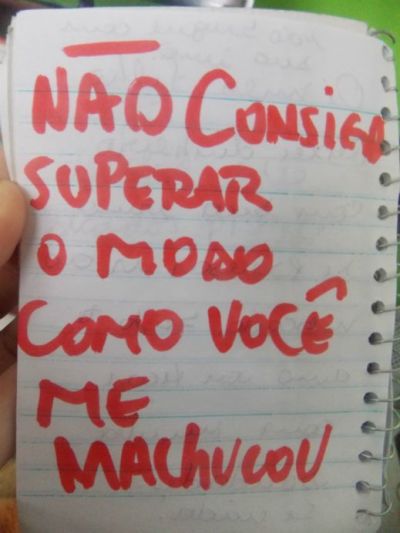 NÃO CONSIGO
SUPERAR
O MODO
COMO VOCÊ
ME
MACHUCOU